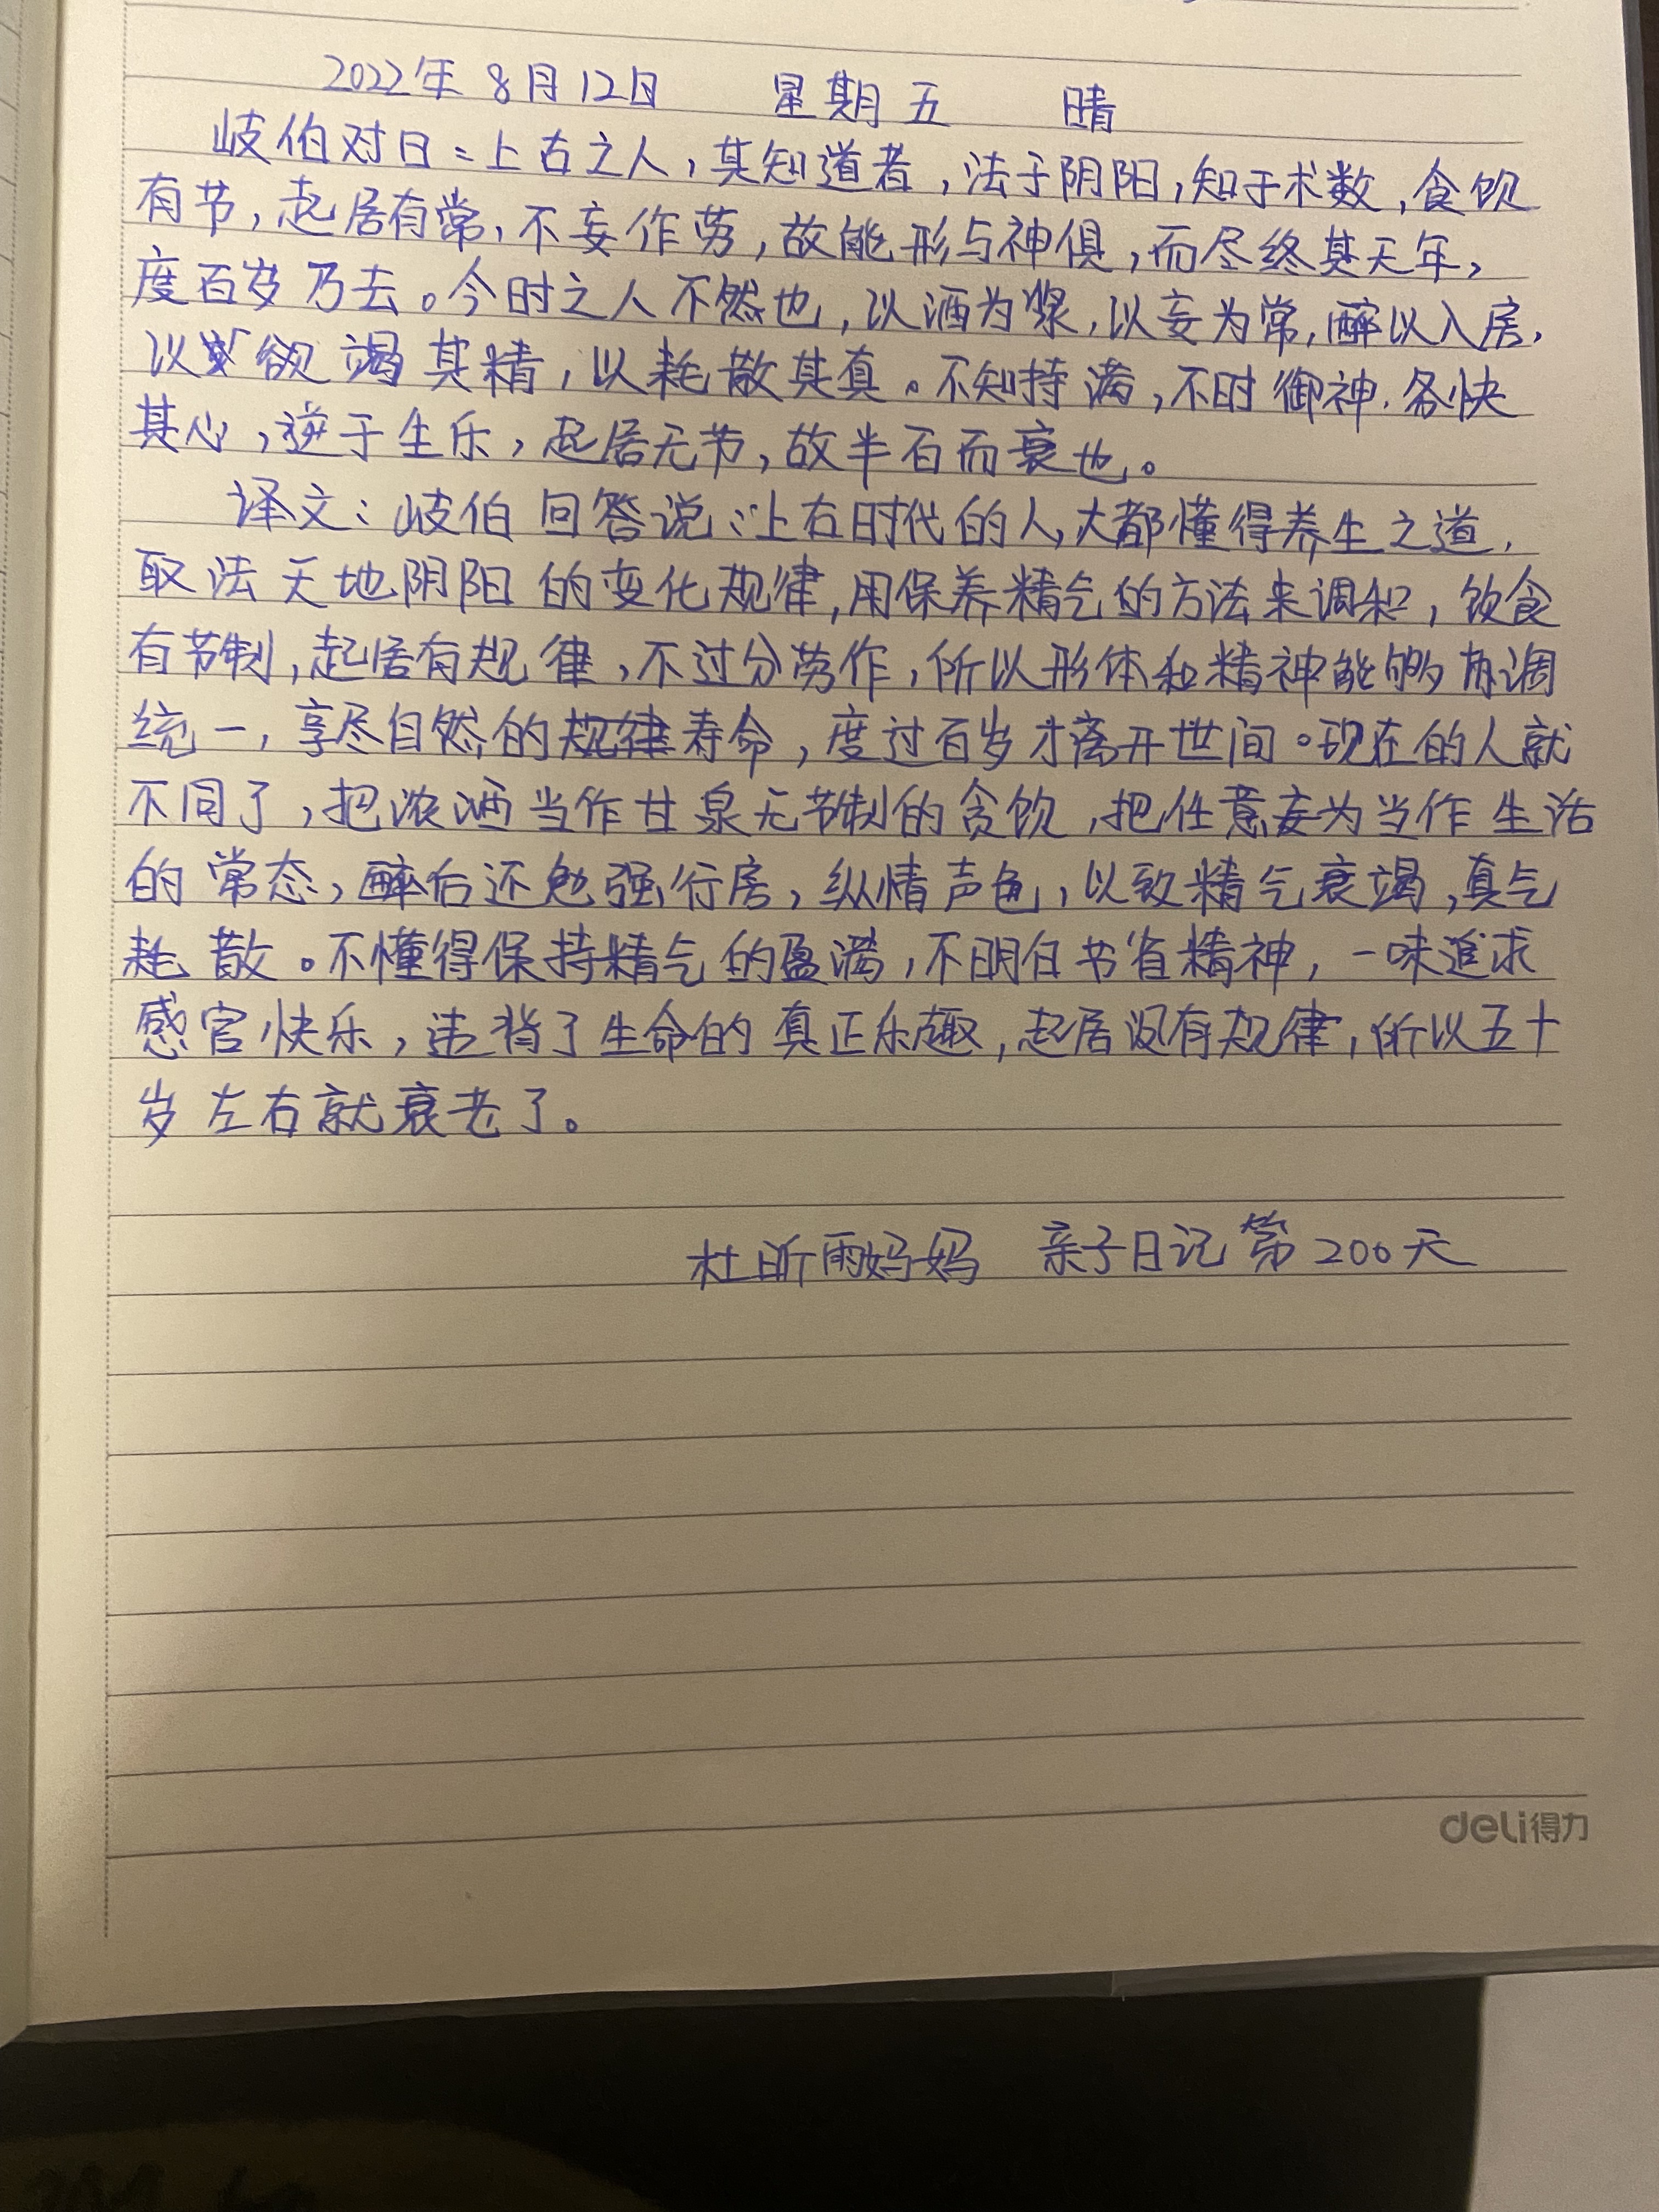 2022年 8月12日 星期五 晴
岐伯对曰:上古之人,其知道者,法于阴阳,知于术数,食饮
有节,起居有常,不妄作劳,故能形与神俱,而尽终其天年,
度百岁乃去。今时之人不然也,以酒为浆,以妄为常,醉以入房,
以欲竭其精,以耗散其真。不知持满,不时御神.务快
其心,逆于生乐,起居无节,故半百而衰也。
译文:岐伯回答说:上古时代的人,大都懂得养生之道,
取法天地阴阳的变化规律,用保养精气的方法来调和,饮食
有节制,起居有规律,不过分劳作,所以形体和精神能够协调
统一,享尽自然的规律寿命,度过百岁才离开世间。现在的人就
不同了,把浓酒当作甘泉无节制的贪饮,把任意妄为当作生活
的常态,醉后还勉强行房,纵情声色,以致精气衰竭,真气
耗散。不懂得保持精气的盈满,不明白节省精神,一味追求
感官快乐,违背了生命的真正乐趣,起居没有规律,所以五十
岁左右就衰老了。
杜昕雨妈妈 亲子日记第200天
deli得力